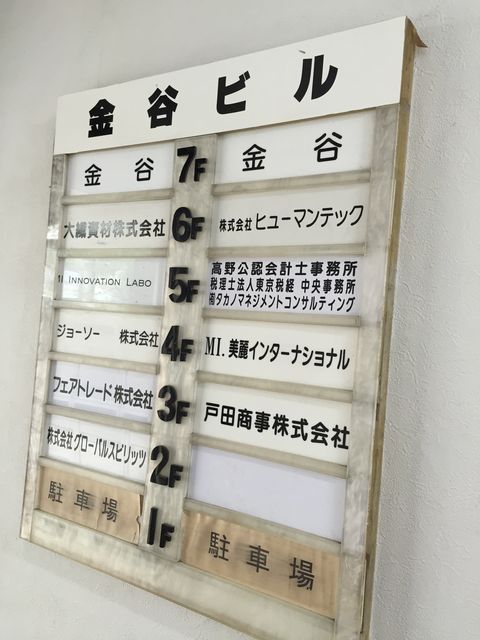 金谷ビル
金谷 7F 金谷
大繊資材株式会社 6F 株式会社ヒューマンテック
INNOVATION LABO 5F 高野公認会計士事務所
税理士法人東京税経 中央事務所
㈲タカノマネジメントコンサルティング
ジョーソー 株式会社 4F MI.美麗インターナショナル
フェアトレード株式会社 3F 戸田商事株式会社
株式会社グローバルスピリッツ 2F
駐車場 1F 駐車場